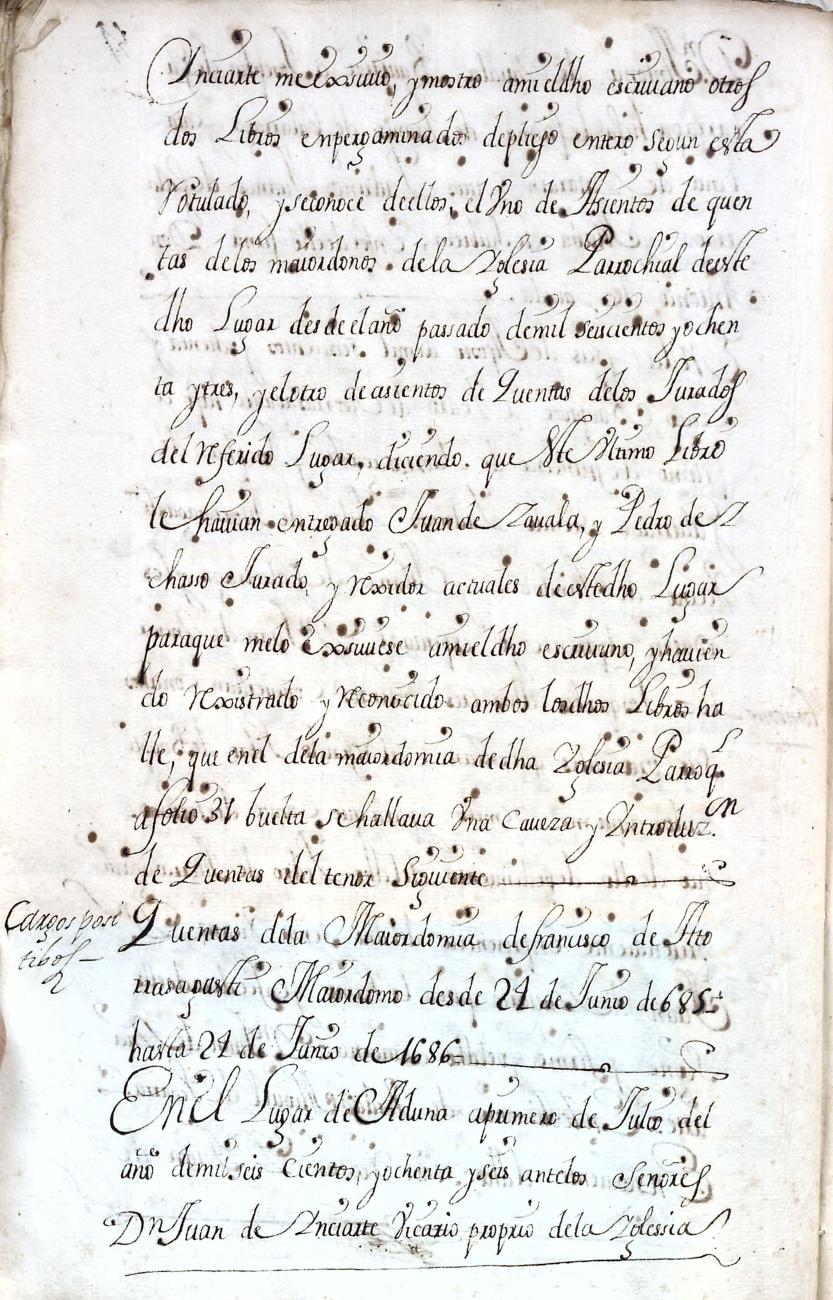 Ynciarte me exsiuio, y mostro ami el dho escriuano otros
dos Libros enpergaminados de pliego entero segun esta
Rotulado, y seconoce deellos, el Vno de Asientos de quen
tas delos maiordonos dela Yglesia Parrochial deeste
dho Lugar desde el año passado demil seiscientos y ochen
ta y tres, y el otro de asientos de Quentas delos Jurados
del Referido Lugar, diciendo. que este Vltimo Libro
le hauian entregado Juan de Zauala, y Pedro de Z
chasso Jurado, y Rexidor actuales de este dho Lugar
paraque melo exsiuiese ami el dho escriuano, y hauien
do Rexistrado y Reconocido ambos los dhos Libros ha
lle, que enel dela maiordomia de dha Yglesia Parroq.l
a folio 31 buelta se hallaua Vna Caueza y Yntroduz.on
de Quentas del tenor Siguiente
Cargos posi
tibos
Quentas dela Maiordomia de francisco de Ato
rrasagasti Maiordomo desde 24 de Junio de 685
hasta 24 de Junio de 1686
En el Lugar de Aduna a primero de Julio del
año demil seis Cientos, y ochenta y seis antelos Señores
Dn Juan de Ynciarte Vicario proprio dela Yglessia